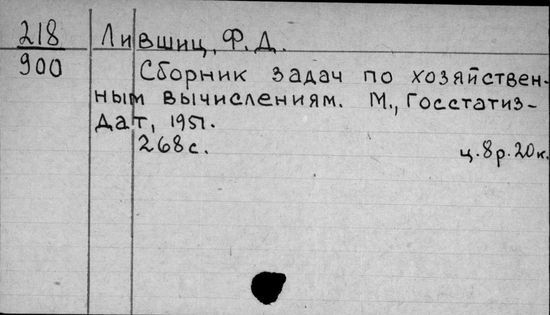 218 Лившиц, Ф. Д.
900 Сборник задач по хозяйствен-
ным вычислениям. М., Госстатиз-
дат, 1951.
268 с. ц. 8 р. 20 к.